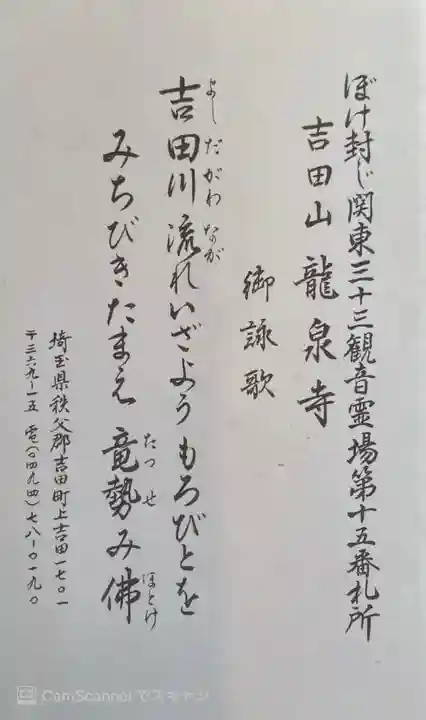 ぼけ封じ関東三十三観音霊場第十五番札所
吉田山 龍泉寺
御詠歌
吉田川流れいざようもろびとを
よしだがわなが
みちびきたまえ 竜勢み佛
たつせ ほとけ
埼玉県秩父郡吉田町上吉田一七〇一
〒三六九ー一五 電(〇四九四)七八ー〇一九〇
CamScanner でスキャン